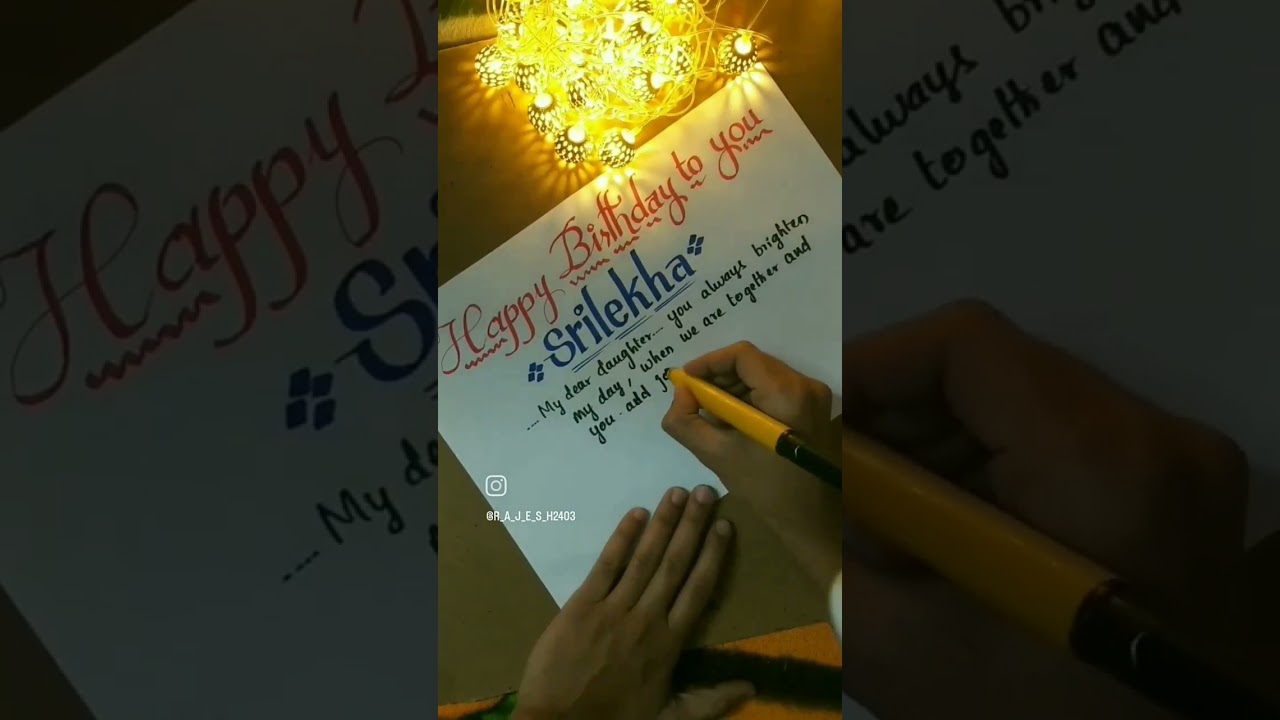 Happy Birthday to you
Srilekha
.... My dear daughter.... you always brighten
my day, when we are together and
you. add jo
@R_A_J_E_S_H2403